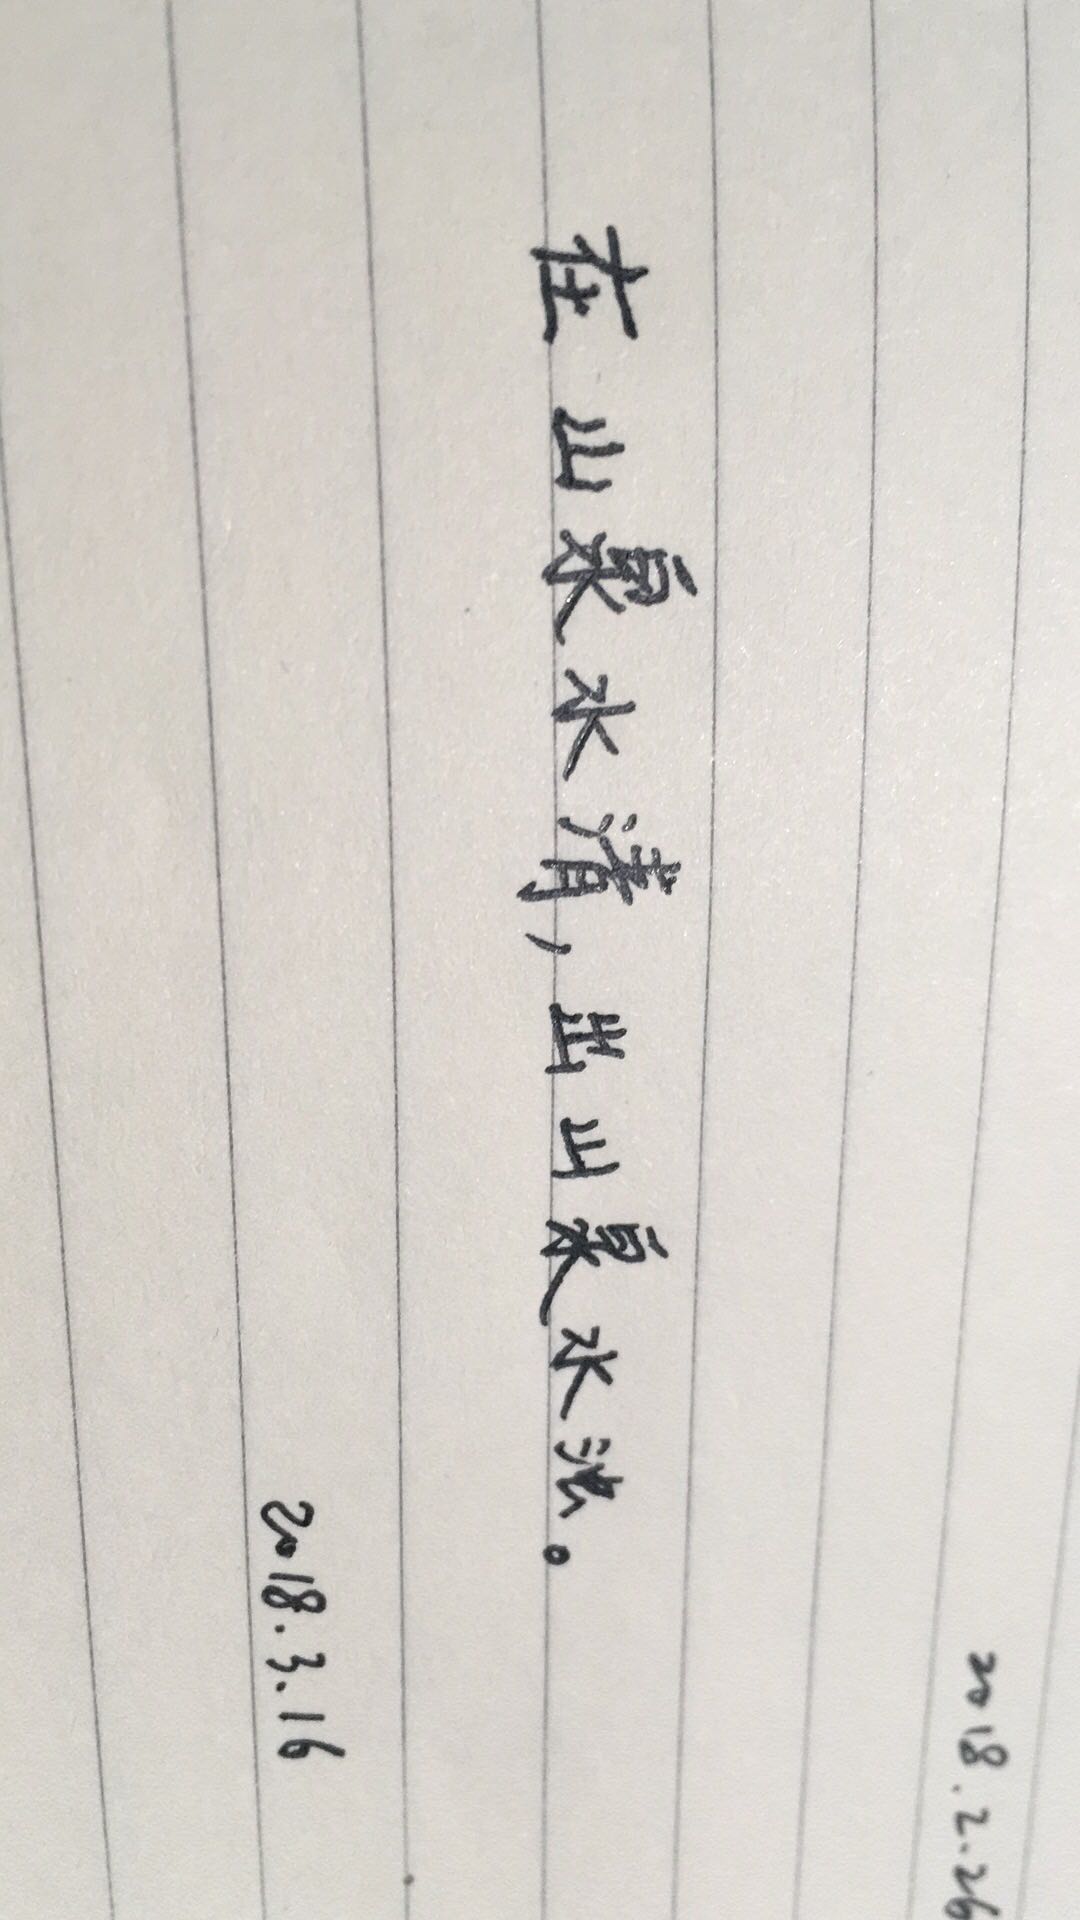 2018.2.26
在山泉水清,出山泉水浊。
2018.3.16